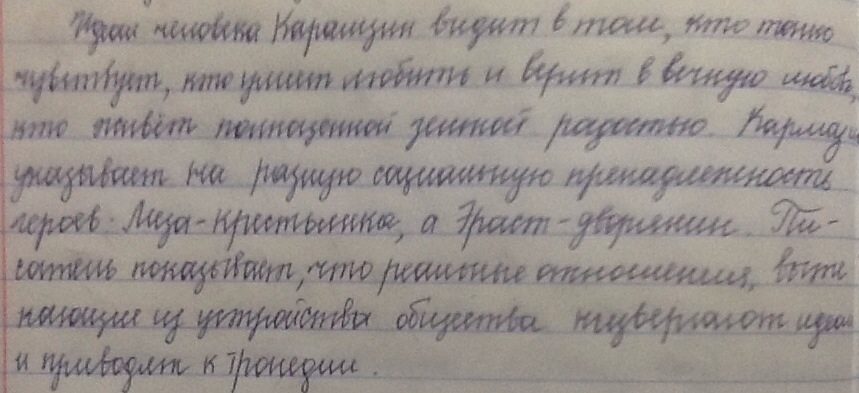 Идеал человека Карамзин видит в том, кто тонко
чувствует, кто умеет любить и верит в вечную любовь,
кто живёт полноценной земной радостью. Карамзи
указывает на разную социальную препадлежность
героев. Лиза-крестьянка, а Эраст-дворянин. Пи-
сатель показывает, что реальные отношения, выте
кающие из устройства общества низвергают идеал
и приводят к трагедии.